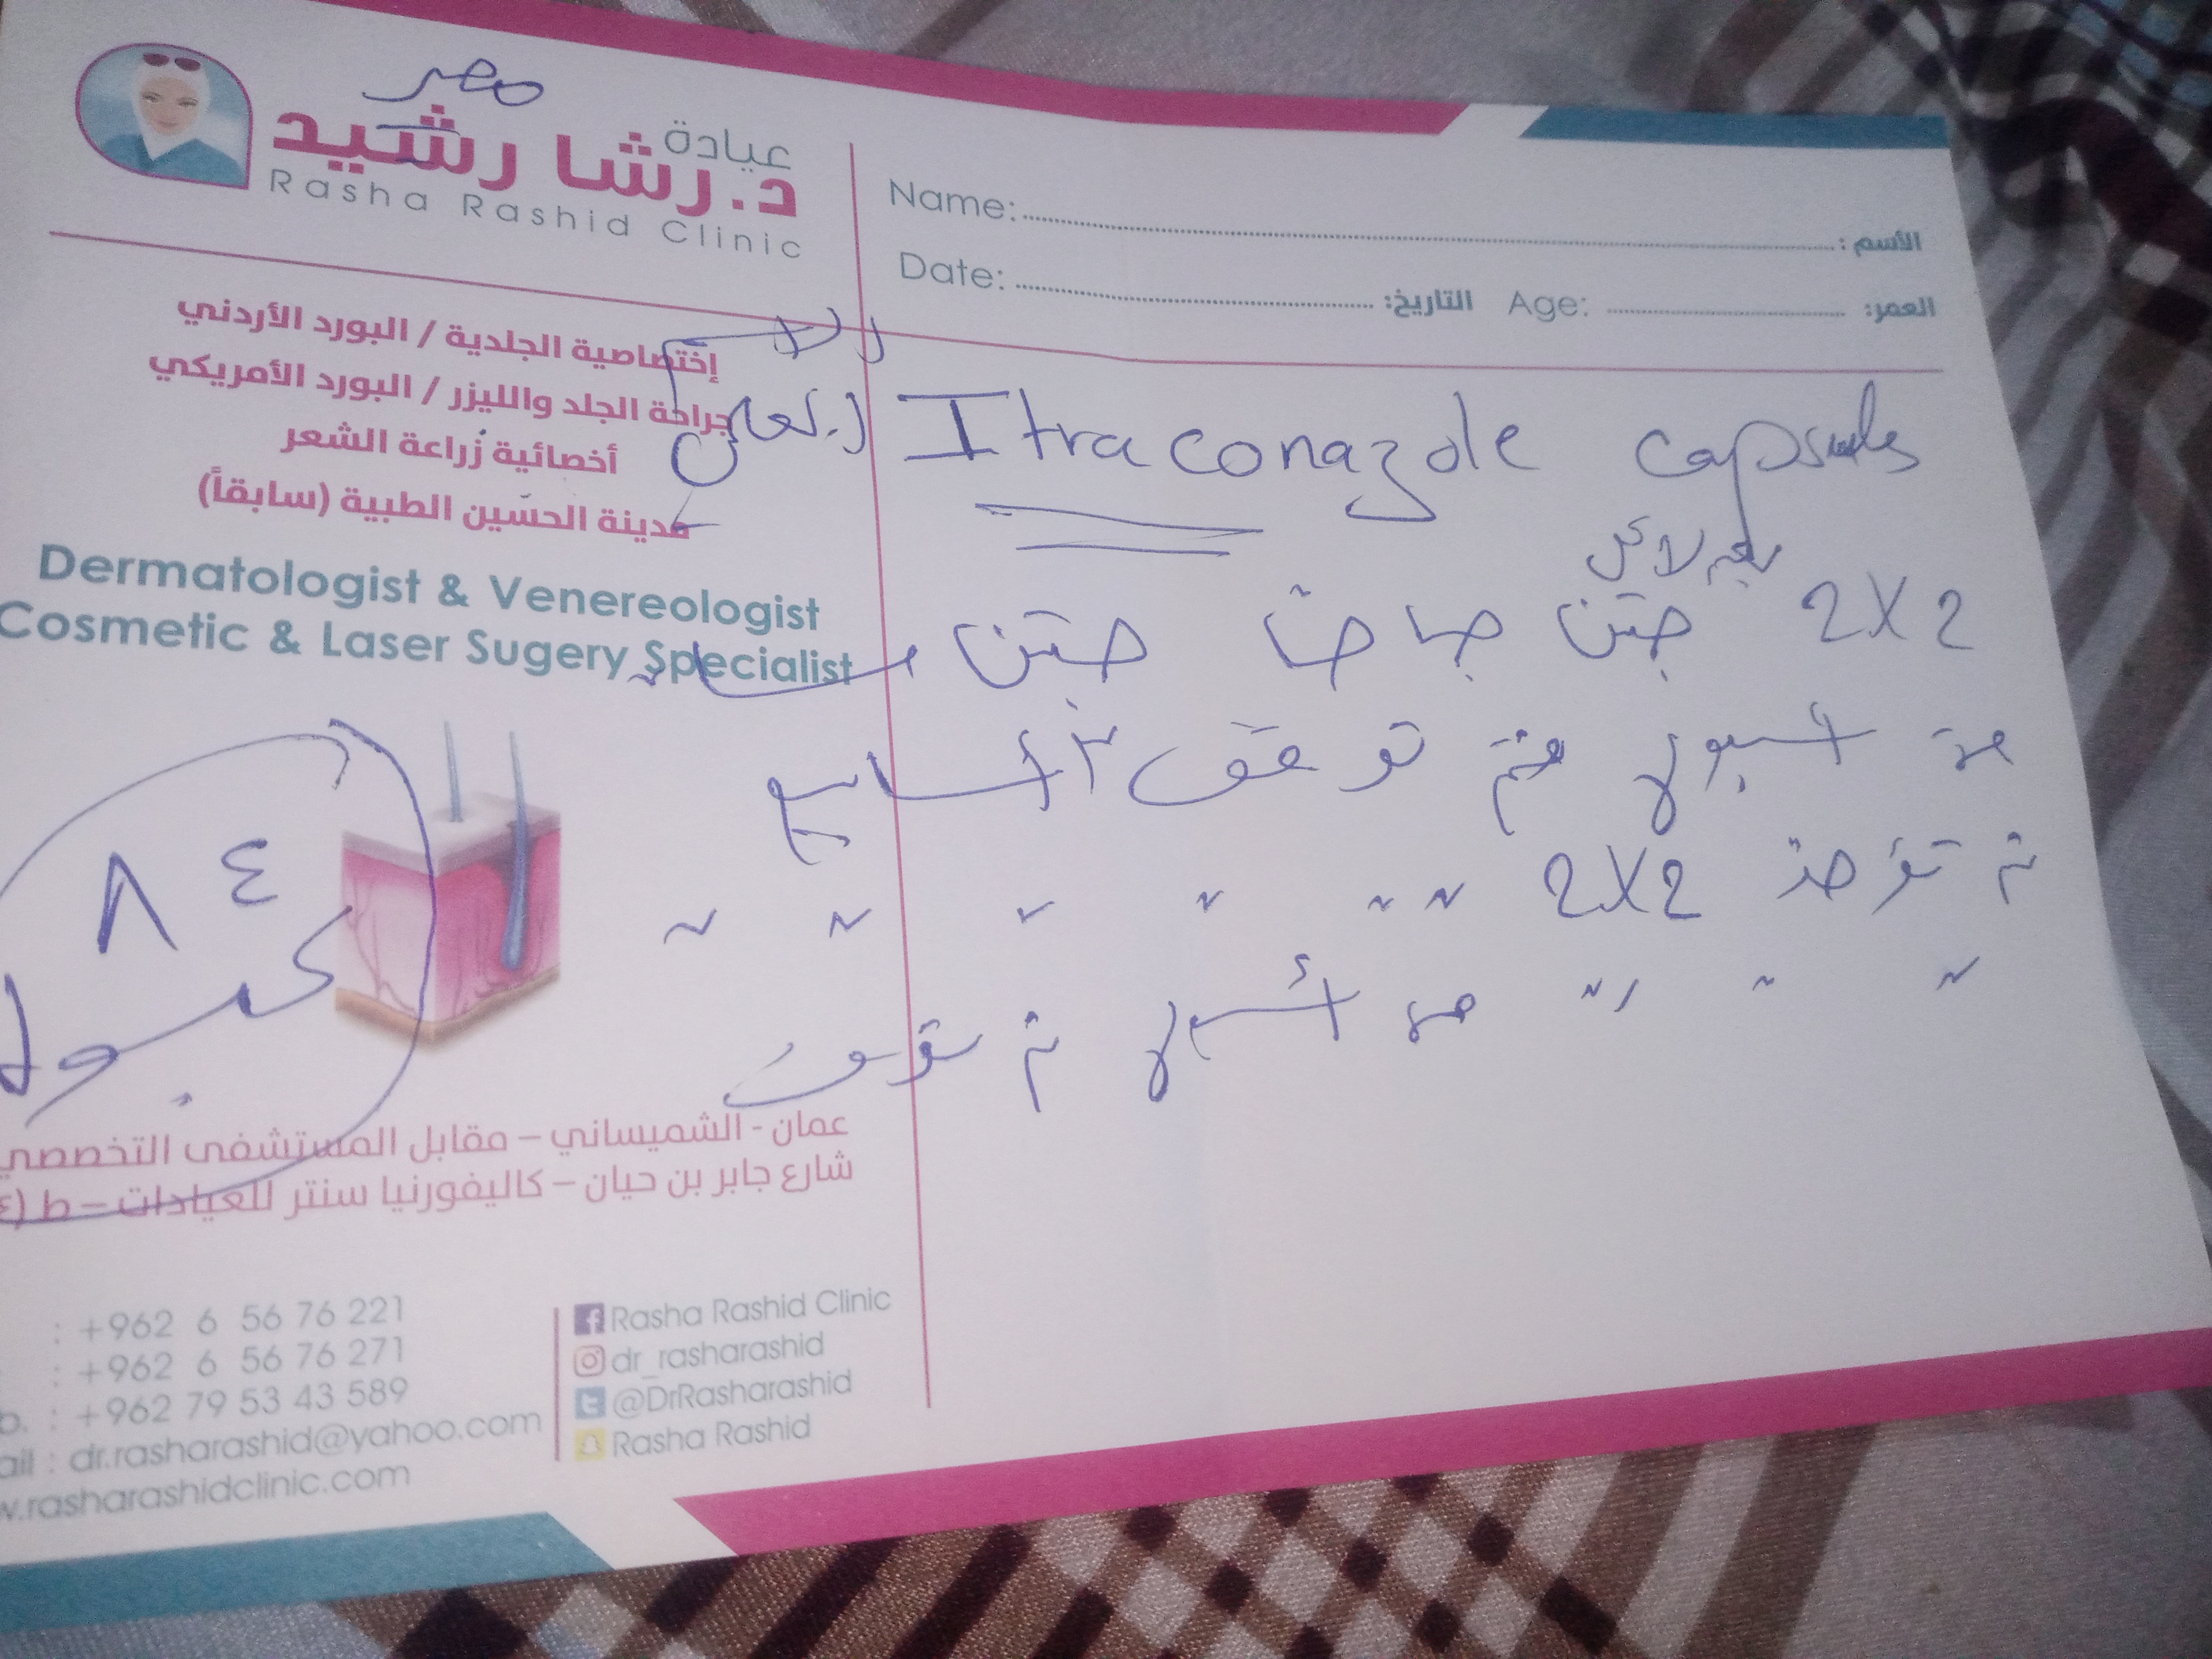 مصر
عيادة
د. رشا رشيد
Rasha Rashid Clinic
Name: الأسم :
Date: التاريخ: Age: العمر:
إختصاصية الجلدية / البورد الأردني
جراحة الجلد والليزر / البورد الأمريكي
أخصائية زراعة الشعر
مدينة الحسين الطبية (سابقاً)
Dermatologist & Venereologist
Cosmetic & Laser Sugery Specialist
Itraconazole capsules
بعد الاكل
2X2 حبتين صباحاً حبتين مساءً
مدة اسبوع ثم توقف ٣ أسابيع
ثم تؤخذ 2X2 " " " " " "
" " " " مدة أسبوع ثم توقف
٨٤
كبسولة
عمان - الشميساني – مقابل المستشفى التخصصي
شارع جابر بن حيان – كاليفورنيا سنتر للعيادات – ط (٤
: +962 6 56 76 221
: +962 6 56 76 271
b. : +962 79 53 43 589
ail : dr.rasharashid@yahoo.com
w.rasharashidclinic.com
Rasha Rashid Clinic
dr_rasharashid
@DrRasharashid
Rasha Rashid